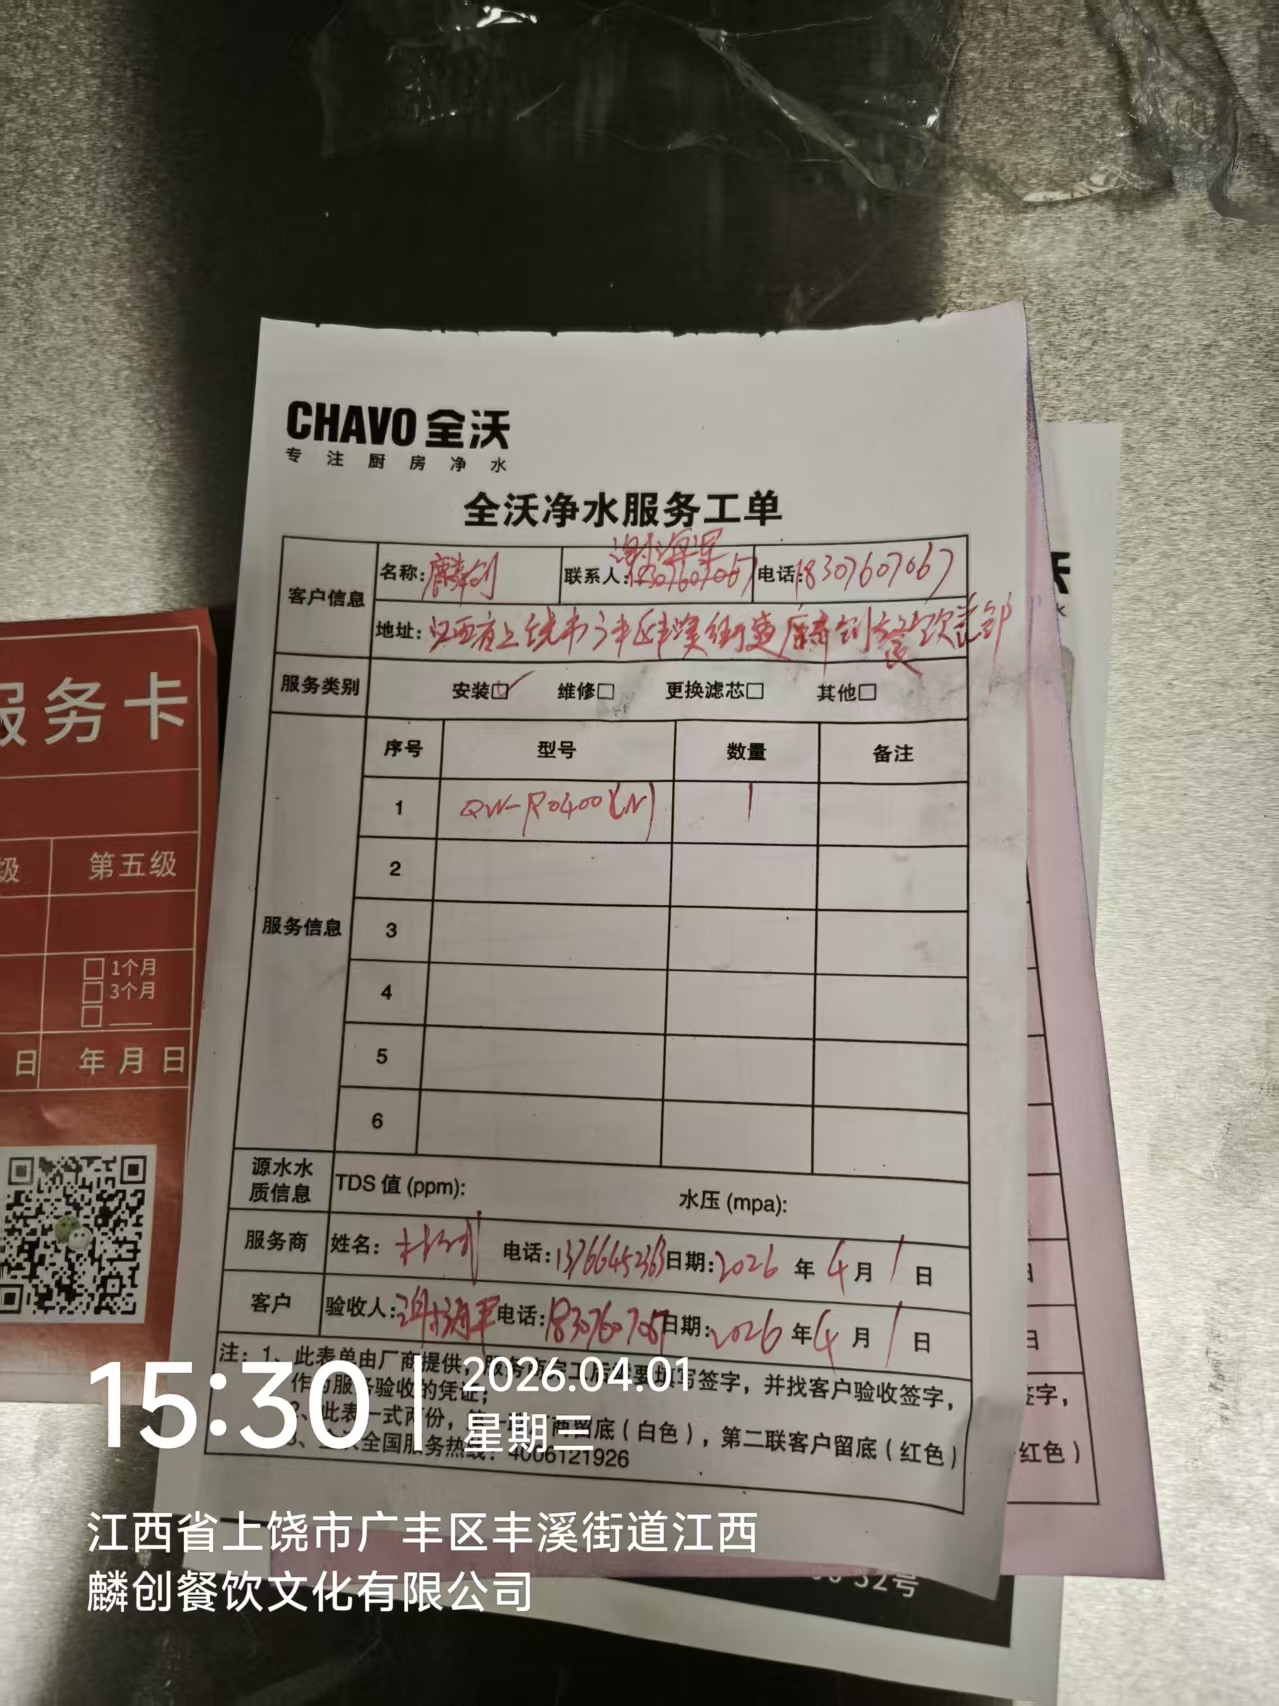 CHAVO 全沃
专注厨房净水
全沃净水服务工单
客户信息 名称: 麟创 联系人: 18307607067 电话: 18307607067
地址: 江西省上饶市广丰区丰溪街道麟创餐饮
服务类别 安装☑ 维修□ 更换滤芯□ 其他□
服务信息 序号 型号 数量 备注
1 QW-R0400(N) 1
2
3
4
5
6
源水水质信息 TDS 值 (ppm): 水压 (mpa):
服务商 姓名: 电话: 13766645363 日期: 2026 年 4 月 1 日
客户 验收人: 电话: 日期: 2026 年 4 月 1 日
注: 1、此表单由厂商提供, 签字,并找客户验收签字,
作为服务验收的凭证;
2、此表一式两份, 商留底(白色),第二联客户留底(红色)
全国服务热线: 4006121926
服务卡
级 第五级
□ 1个月
□ 3个月
□
日 年 月 日
沃
签字,
红色)
32号
15:30
2026.04.01
星期三
江西省上饶市广丰区丰溪街道江西
麟创餐饮文化有限公司